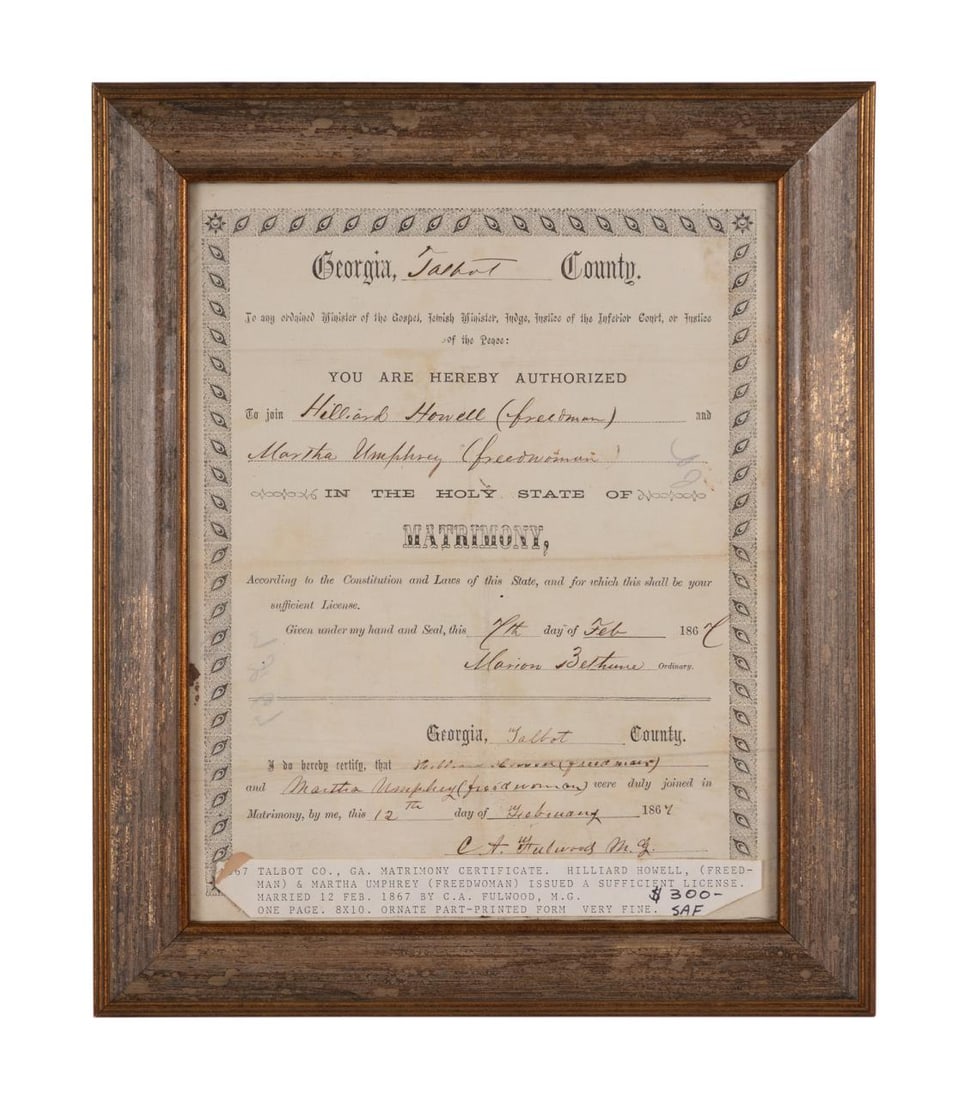 Georgia, Talbot County.
To any ordained Minister of the Gospel, Jewish Minister, Judge, Justice of the Inferior Court, or Justice
of the Peace:
YOU ARE HEREBY AUTHORIZED
To join Hilliard Howell (freedman) and
Martha Umphrey (freedwoman)
IN THE HOLY STATE OF
MATRIMONY,
According to the Constitution and Laws of this State, and for which this shall be your
sufficient License.
Given under my hand and Seal, this 7th day of Feb 1867
Marion Bethune Ordinary.
Georgia, Talbot County.
I do hereby certify, that Hilliard Howell (freedman)
and Martha Umphrey (freedwoman) were duly joined in
Matrimony, by me, this 12th day of February 1867
C. A. Fulwood M.G.
67 TALBOT CO., GA. MATRIMONY CERTIFICATE. HILLIARD HOWELL, (FREED-
MAN) & MARTHA UMPHREY (FREEDWOMAN) ISSUED A SUFFICIENT LICENSE.
MARRIED 12 FEB. 1867 BY C.A. FULWOOD, M.G. $300-
ONE PAGE. 8X10. ORNATE PART-PRINTED FORM VERY FINE. SAF